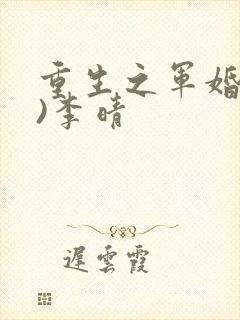 重生之军婚
)李晴
遲雲霞